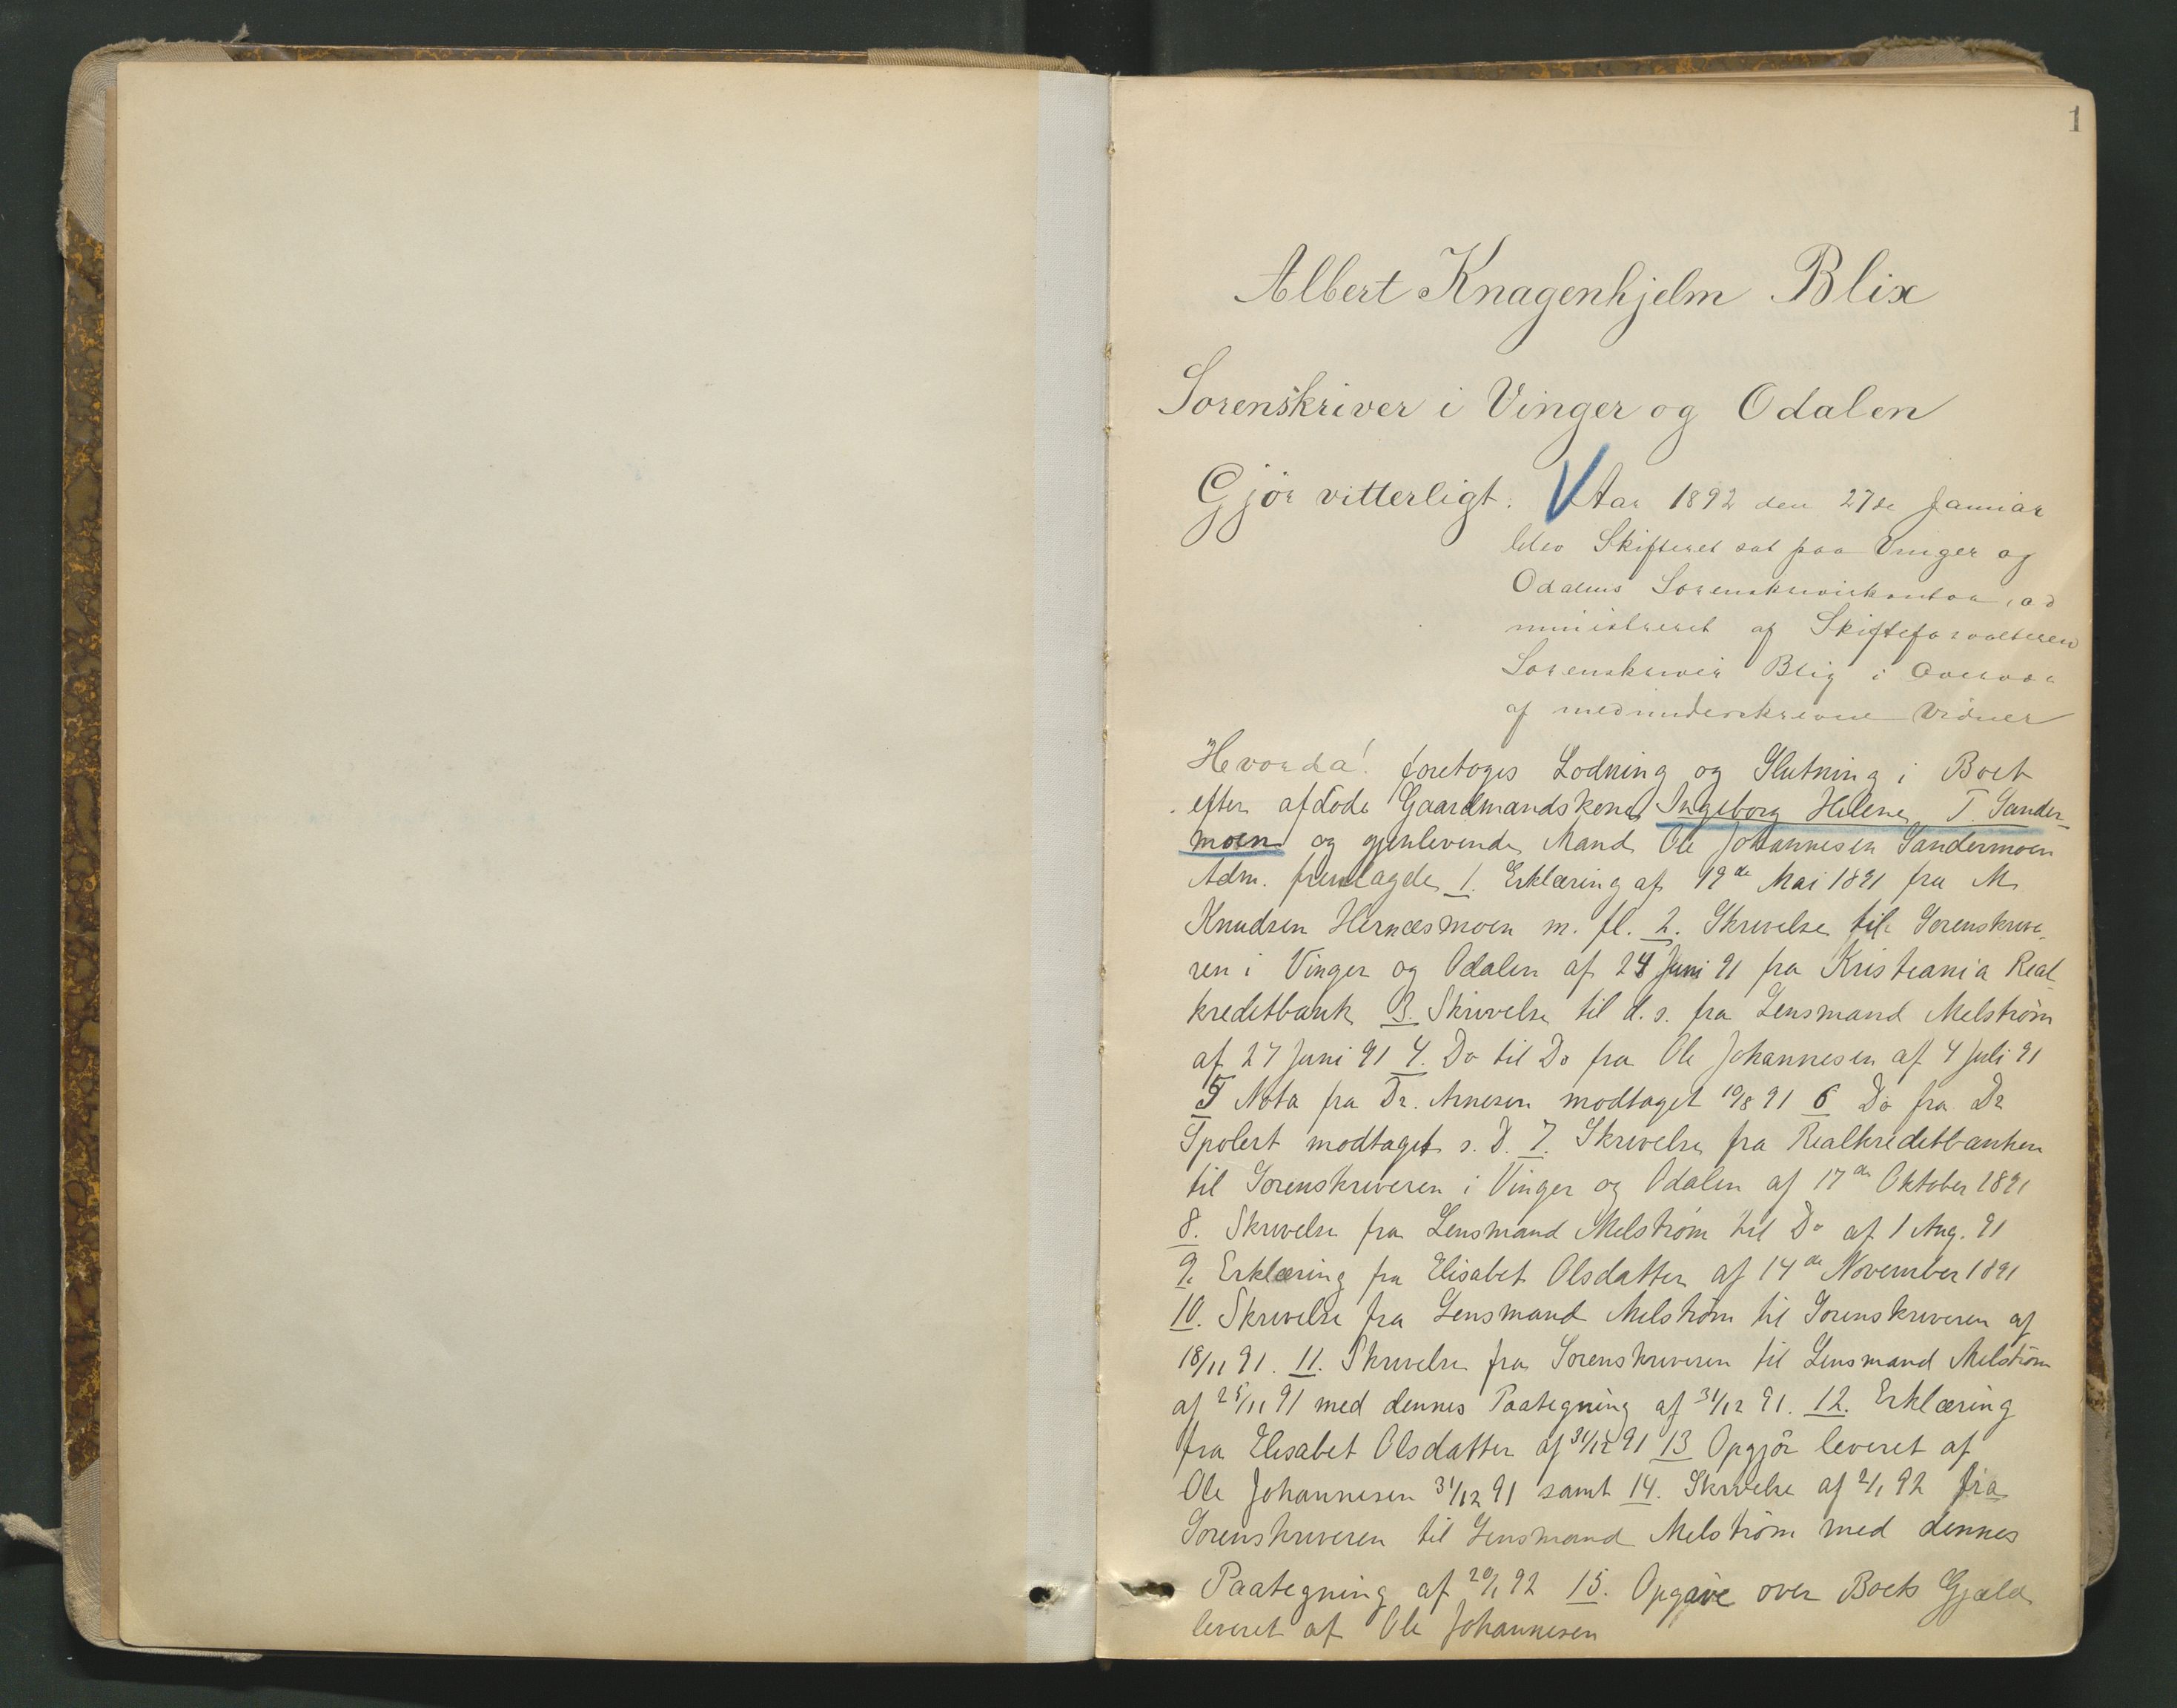 1
Albert Knagenhjelm Blix
Sorenskriver i Vinger og Odalen
Gjör vitterligt: Aar 1892 den 27de Januar
blev Skifteret sat paa Vinger og
Odalens Sorenskriverkontor, ad
ministreret af Skifteforvalteren
Sorenskriver Blix i Overvær
af medunderskrevne Vidner
Hvorda! foretoges Lodning og Slutning i Boet
efter afdøde Gaardmandskone Ingeborg Helene T. Sander-
moen og gjenlevende Mand Ole Johannesen Sandermoen
Adm. fremlagde 1. Erklæring af 19de Mai 1891 fra M
Knudsen Hernæsmoen m. fl. 2. Skrivelse til Sorenskrive-
ren i Vinger og Odalen af 24 Juni 91 fra Kristiania Real-
kreditbank 3. Skrivelse til d. s. fra Lensmand Melström
af 27 Juni 91 4. Do til Do fra Ole Johannesen af 4 Juli 91
5 Nota fra Dr. Arnesen modtaget 10/8 91 6 Do fra Dr
Spolert modtaget s. D. 7. Skrivelse fra Realkreditbanken
til Sorenskriveren i Vinger og Odalen af 17de Oktober 1891
8. Skrivelse fra Lensmand Melström til Do af 1 Aug. 91
9. Erklæring fra Elisabet Olsdatter af 14de November 1891
10. Skrivelse fra Lensmand Melström til Sorenskriveren af
18/11 91. 11. Skrivelse fra Sorenskriveren til Lensmand Melström
af 25/11 91 med dennes Paategning af 31/12 91. 12. Erklæring
fra Elisabet Olsdatter af 31/12 91 13 Opgjör leveret af
Ole Johannesen 31/12 91 samt 14. Skrivelse af 2/1 92 fra
Sorenskriveren til Lensmand Melström med dennes
Paategning af 20/1 92 15. Opgave over Boets Gjæld
leveret af Ole Johannesen